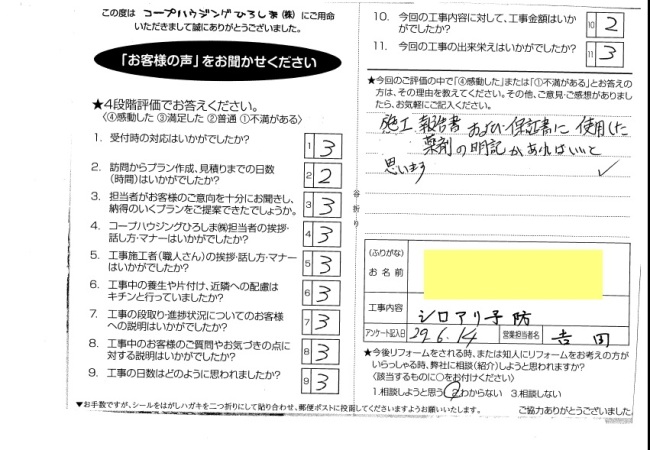 この度は コープハウジングひろしま(株) にご用命
いただきまして誠にありがとうございました。
「お客様の声」をお聞かせください
★4段階評価でお答えください。
〈④感動した ③満足した ②普通 ①不満がある〉
1. 受付時の対応はいかがでしたか? 1 3
2. 訪問からプラン作成、見積りまでの日数
(時間)はいかがでしたか? 2 2
3. 担当者がお客様のご意向を十分にお聞きし、
納得のいくプランをご提案できたでしょうか。 3 3
4. コープハウジングひろしま㈱担当者の挨拶・
話し方・マナーはいかがでしたか? 4 3
5. 工事施工者(職人さん)の挨拶・話し方・マナー
はいかがでしたか? 5 3
6. 工事中の養生や片付け、近隣への配慮は
キチンと行っていましたか? 6 3
7. 工事の段取り・進捗状況についてのお客様
への説明はいかがでしたか? 7 3
8. 工事中のお客様のご質問やお気づきの点に
対する説明はいかがでしたか? 8 3
9. 工事の日数はどのように思われましたか? 9 3
▼お手数ですが、シールをはがしハガキを二つ折りにして貼り合わせ、郵便ポストに投函してくださいますようお願いいたします。
谷折り
10. 今回の工事内容に対して、工事金額はいか
がでしたか? 10 2
11. 今回の工事の出来栄えはいかがでしたか? 11 3
★今回のご評価の中で「④感動した」または「①不満がある」とお答え
の方は、その理由を教えてください。その他、ご意見・ご感想がありまし
たら、お気軽にご記入ください。
施工報告書および保証書に使用した
薬剤の明記があればいいと
思います
(ふりがな)
お名前
工事内容 シロアリ予防
アンケート記入日 29.6.14 営業担当者名 吉田
★今後リフォームをされる時、または知人にリフォームをお考えの方が
いらっしゃる時、弊社に相談(紹介)しようと思われますか?
〈該当するものに○をお付けください〉
1.相談しようと思う ②わからない 3.相談しない
ご協力ありがとうございました